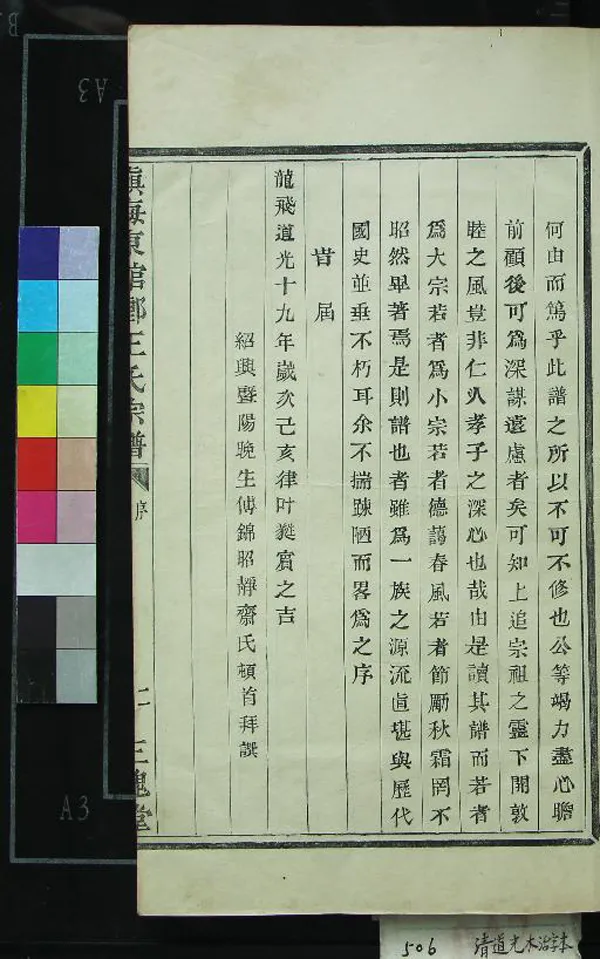 何由而篤乎此譜之所以不可不修也公等竭力盡心瞻
前顧後可爲深謀遠慮者矣可知上追宗祖之靈下開敦
睦之風豈非仁人孝子之深心也哉由是讀其譜而若者
爲大宗若者爲小宗若者德藹春風若者節勵秋霜罔不
昭然畢著焉是則譜也者雖爲一族之源流直堪與歷代
國史並垂不朽耳余不揣踈陋而畧爲之序
旹屆
龍飛道光十九年歲次己亥律叶蕤賓之吉
紹興暨陽晚生傅錦昭靜齋氏頓首拜譔
鎮海東管鄉王氏宗譜
序
二
三槐堂
A3
A3
B
506
清道光木活字本